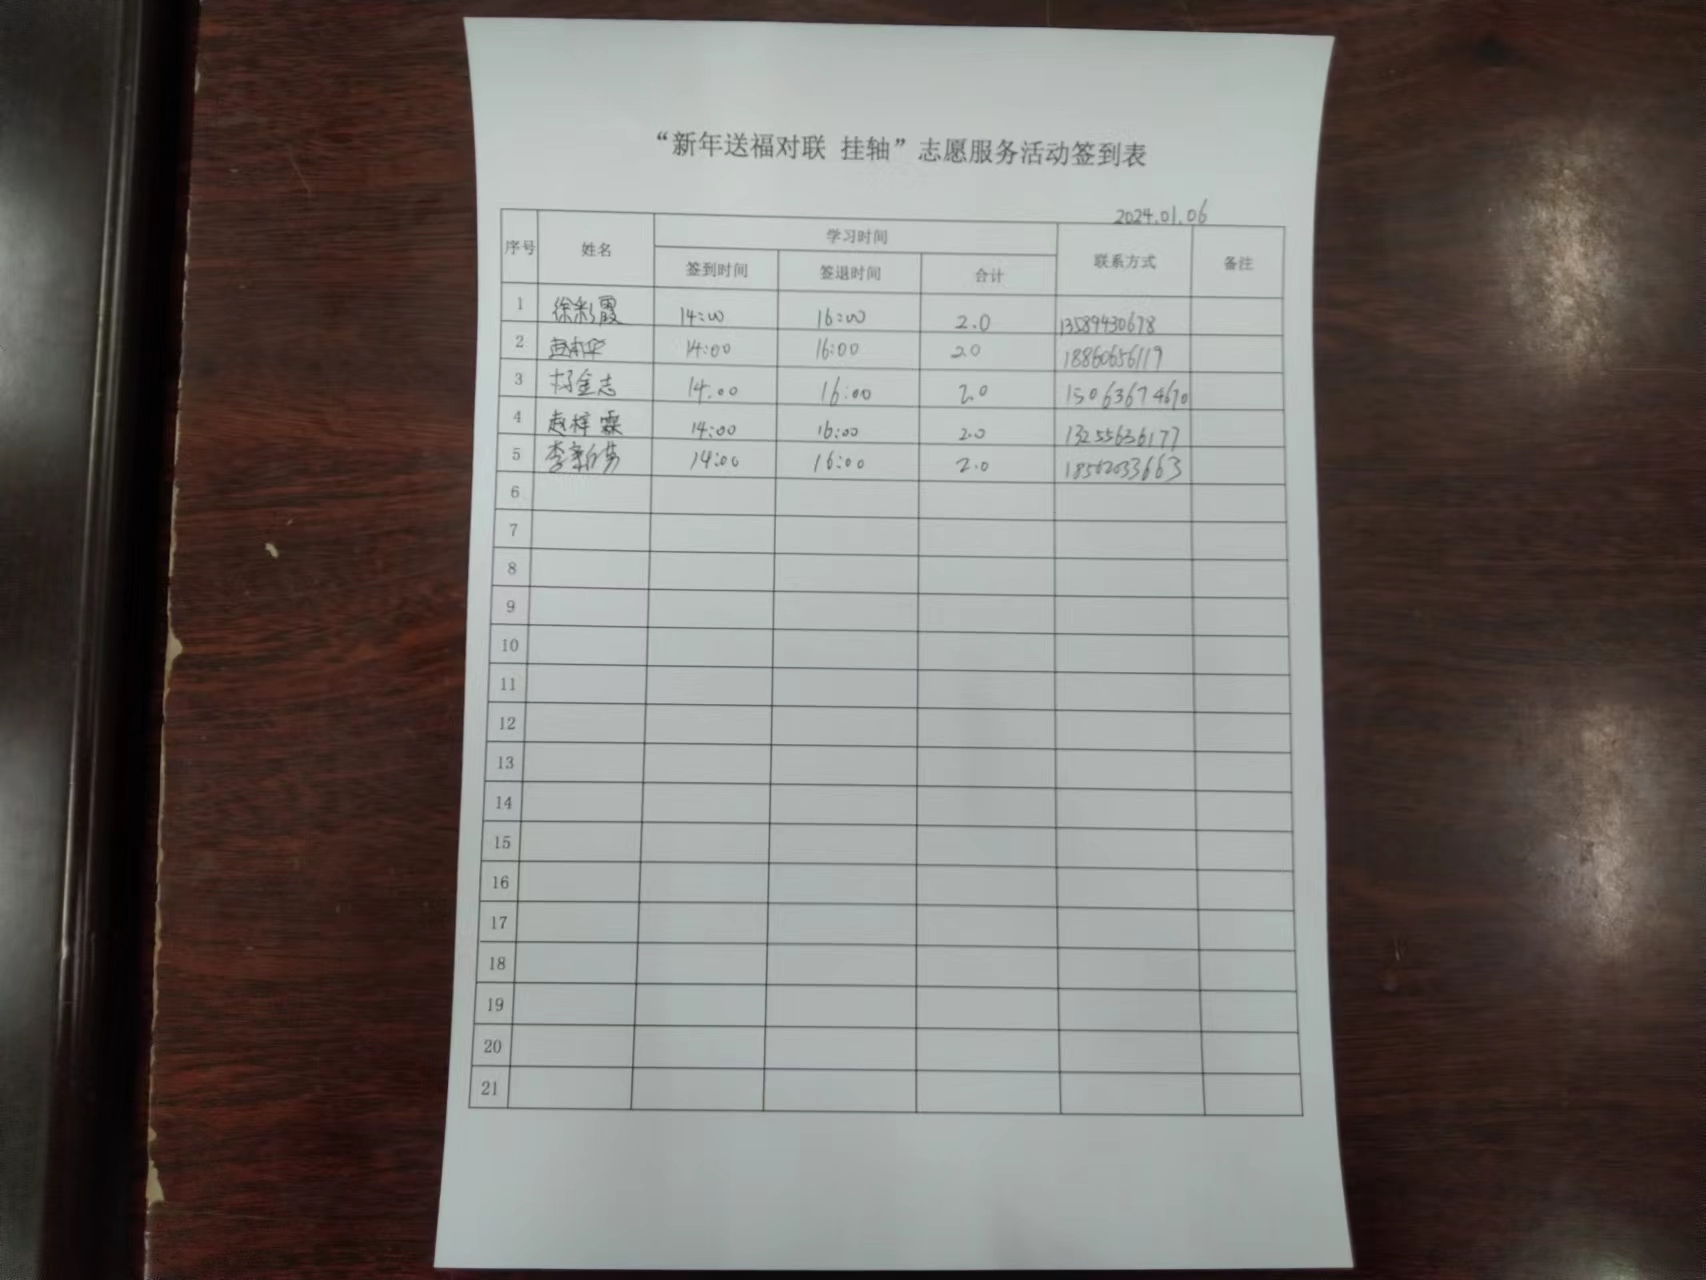 “新年送福对联 挂轴”志愿服务活动签到表
2024.01.06
序号 姓名 学习时间 联系方式 备注
签到时间 签退时间 合计
1 徐彩霞 14:00 16:00 2.0 13589430678
2 14:00 16:00 2.0 18860656119
3 杨金志 14:00 16:00 2.0 15063674670
4 赵梓霖 14:00 16:00 2.0 13255636177
5 李新芳 14:00 16:00 2.0 18562033663
6
7
8
9
10
11
12
13
14
15
16
17
18
19
20
21